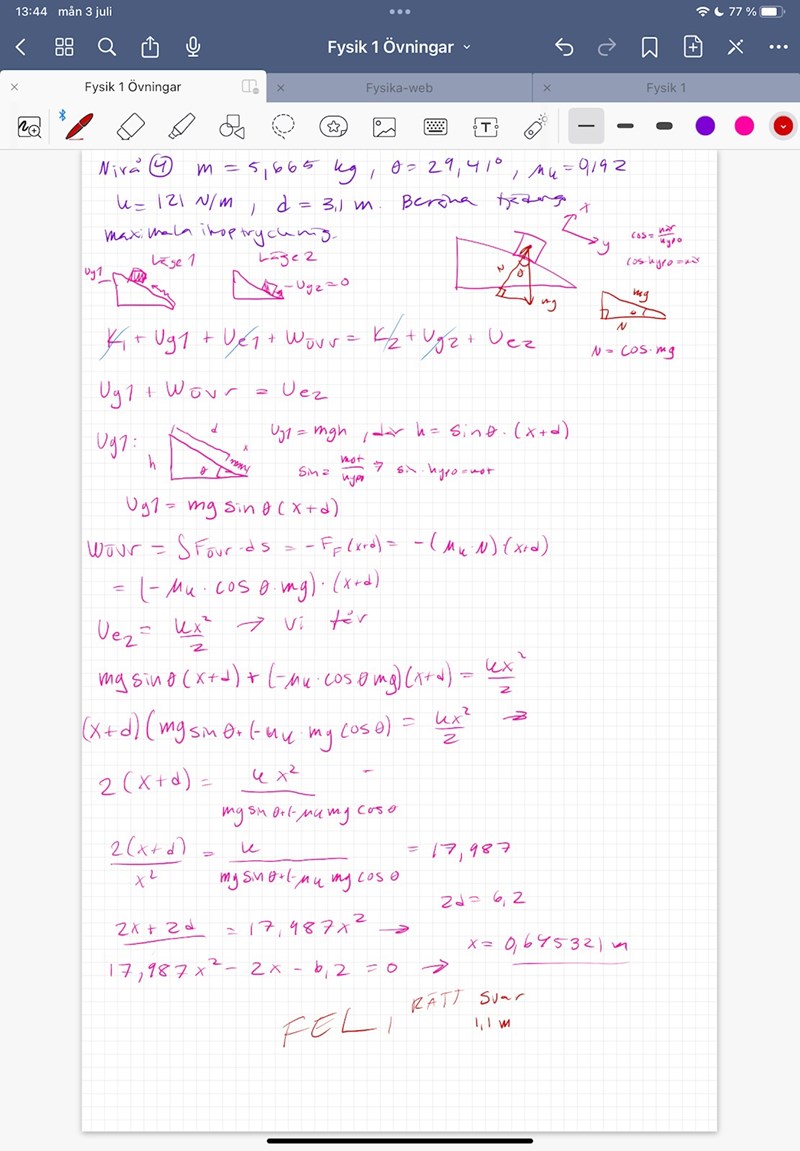 13:44 mån 3 juli
77 %
Fysik 1 Övningar
Fysik 1 Övningar
Fysika-web
Fysik 1
Nivå 4 m = 5,665 kg, θ = 29,41°, μk = 0,192
k = 121 N/m, d = 3,1 m. Beräkna fjäderns
maximala ihoptryckning.
x
y
cos = när/hypo
cos·hypo = när
Läge 1
Läge 2
Ug1
Ug2 = 0
N
θ
mg
mg
θ
N
N = cos·mg
K1 + Ug1 + Ue1 + Wövr = K2 + Ug2 + Ue2
Ug1 + Wövr = Ue2
Ug1:
d
x
h
θ
Ug1 = mgh, där h = sinθ·(x+d)
sin = mot/hypo → sin·hypo = mot
Ug1 = mg sinθ(x+d)
Wövr = ∫Fövr·ds = -FF(x+d) = -(μk·N)(x+d)
= (-μk·cosθ·mg)·(x+d)
Ue2 = kx²/2 → vi får
mg sinθ(x+d) + (-μk·cosθ mg)(x+d) = kx²/2
(x+d)(mg sinθ + (-μk·mg cosθ) = kx²/2 →
2(x+d) = kx²/mg sinθ+(-μk mg cosθ
2(x+d)/x² = k/mg sinθ+(-μk mg cosθ = 17,987
2d = 6,2
2x + 2d = 17,987x² →
x = 0,645321 m
17,987x² - 2x - 6,2 = 0 →
FEL, RÄTT svar
1,1 m